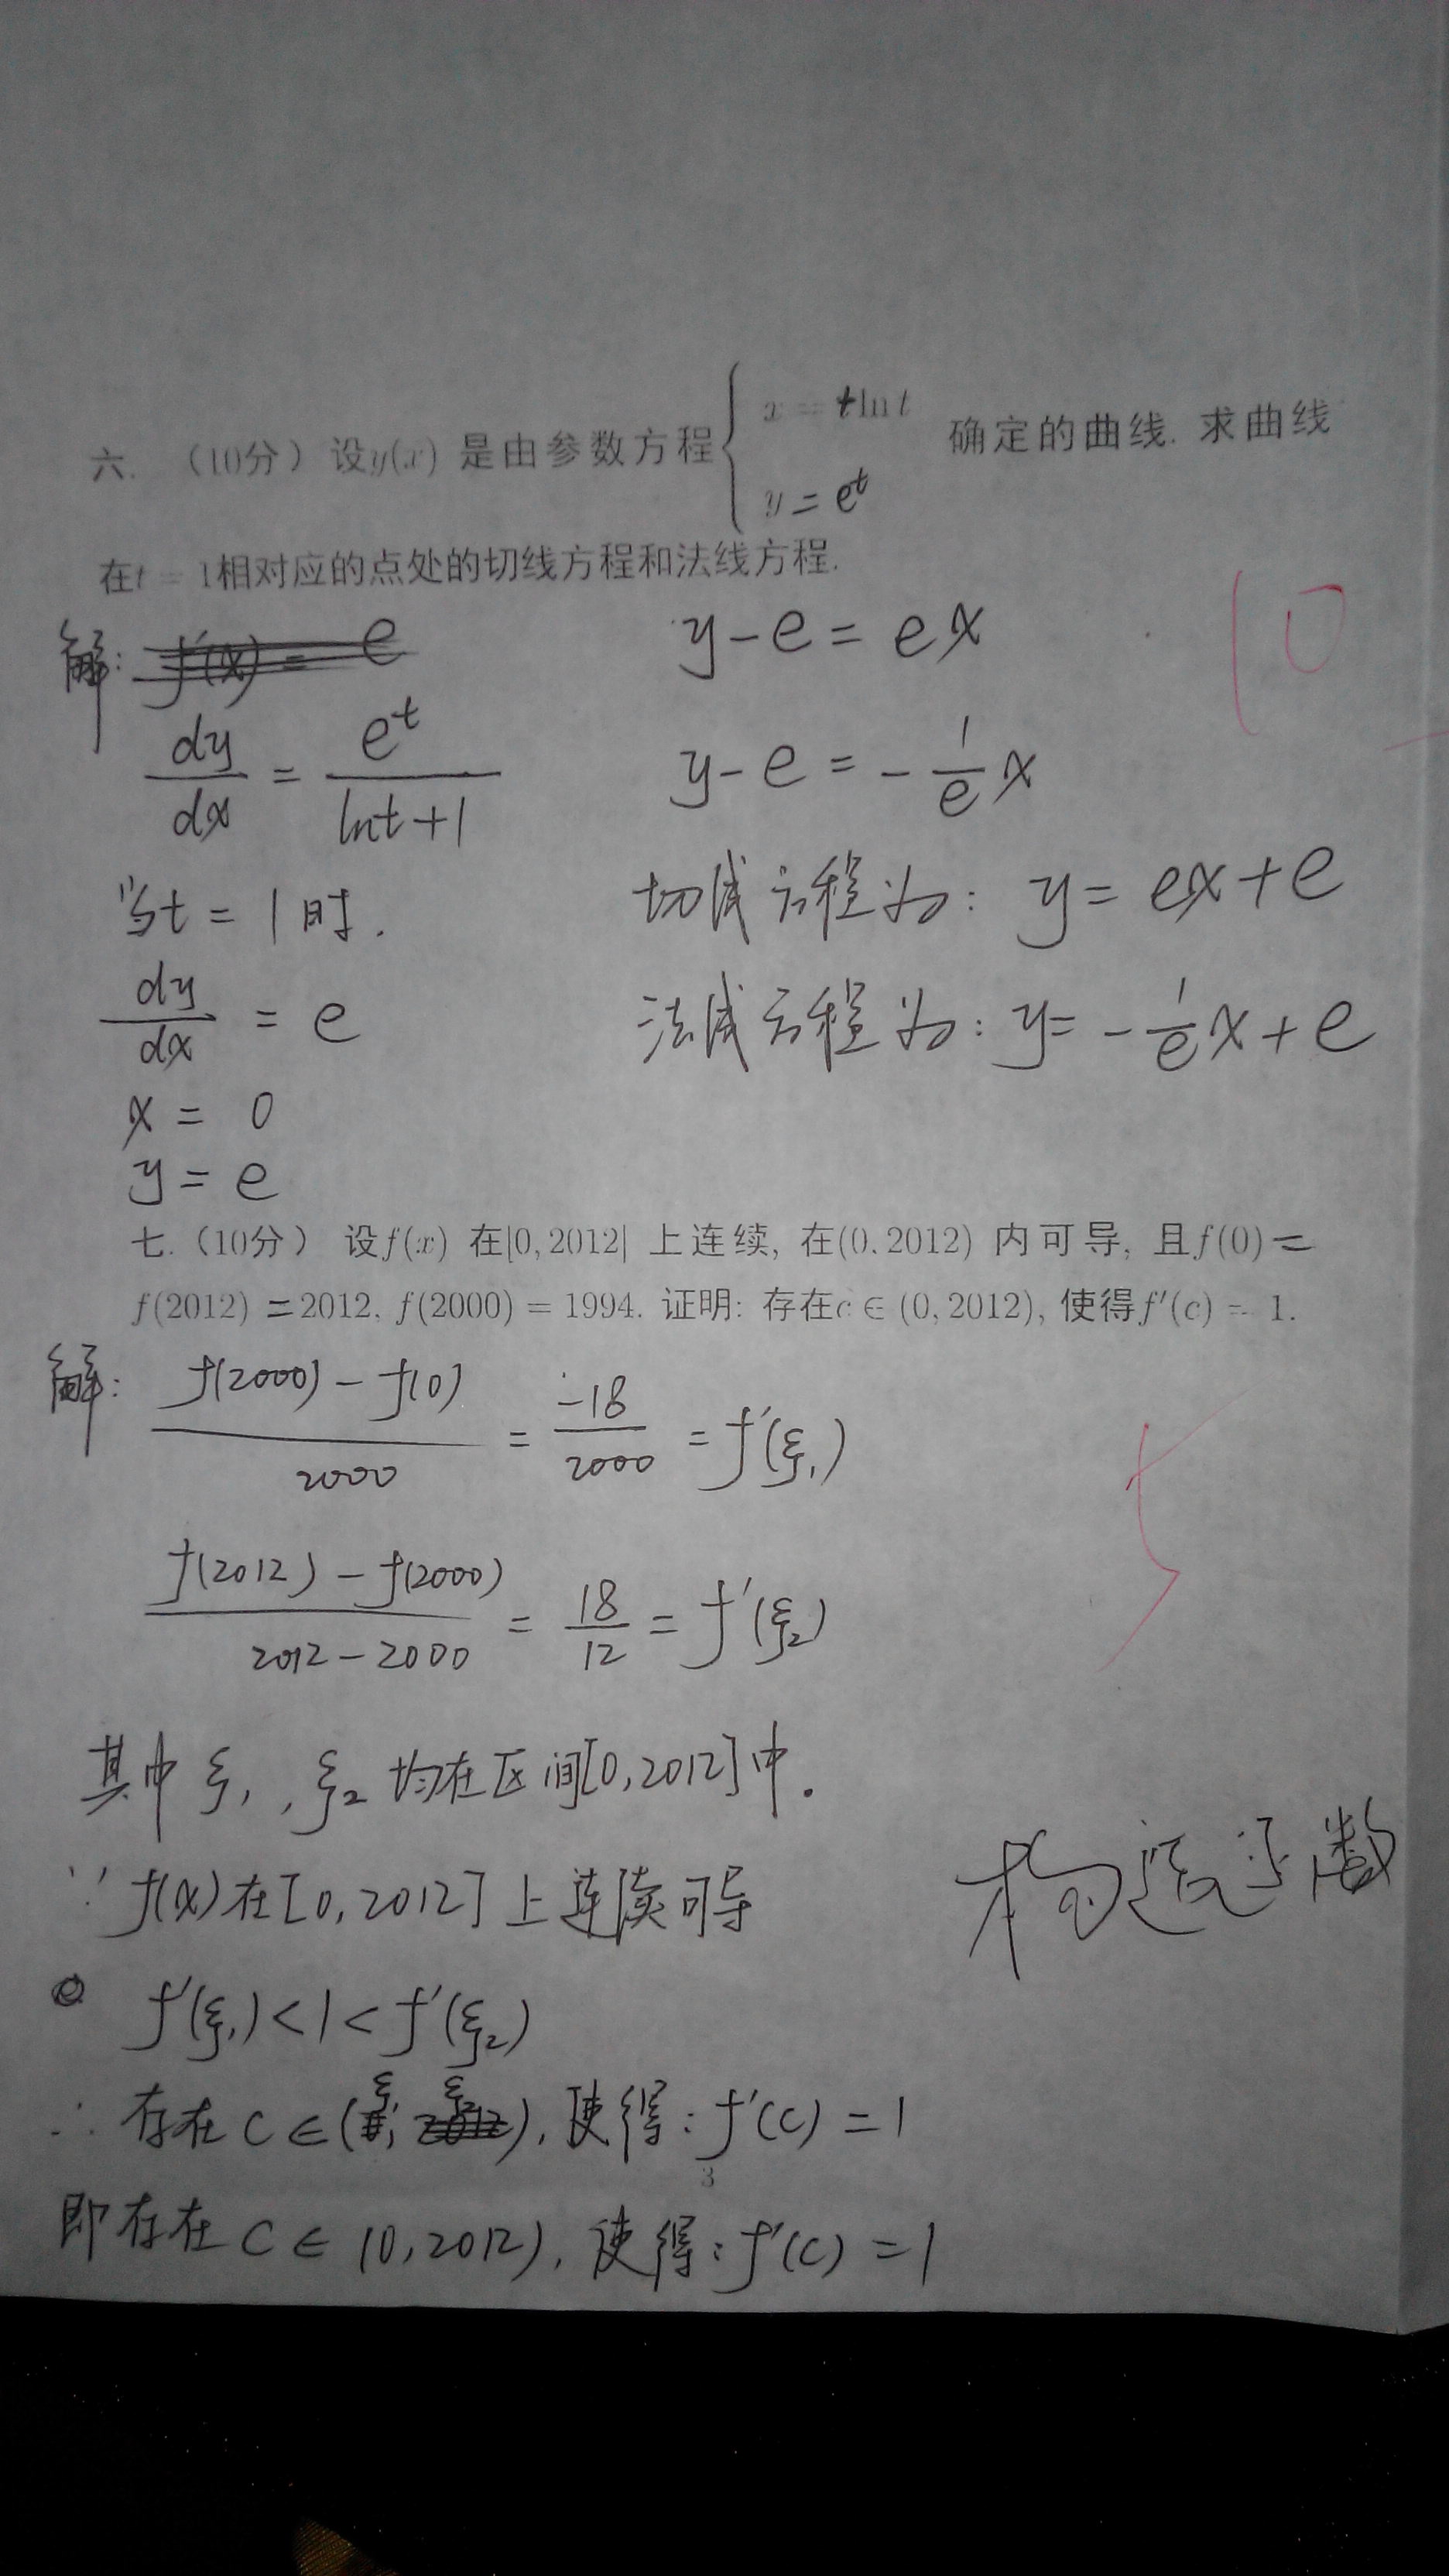 六. （10分）设y(x) 是由参数方程 { x = t ln t
y = e^t 确定的曲线. 求曲线
在t = 1相对应的点处的切线方程和法线方程.
10
解: f'(x) = e
dy/dx = e^t/(lnt+1)
当t = 1时.
dy/dx = e
x = 0
y = e
y-e = ex
y-e = -1/e x
切线方程为: y = ex+e
法线方程为: y= -1/e x+e
七.（10分） 设f(x) 在[0, 2012] 上连续, 在(0. 2012) 内可导, 且f(0) =
f(2012) = 2012, f(2000) = 1994. 证明: 存在c ∈ (0, 2012), 使得f'(c) = 1.
解: (f(2000) - f(0))/2000 = -18/2000 = f'(ξ₁)
(f(2012) - f(2000))/(2012-2000) = 18/12 = f'(ξ₂)
5
其中 ξ₁, ξ₂ 均在区间[0,2012]中.
∵ f(x)在[0,2012]上连续可导
构造函数
f'(ξ₁)<1<f'(ξ₂)
∴ 存在 C∈(ξ₁, ξ₂), 使得: f'(c) = 1
3
即存在 C∈(0,2012), 使得: f'(c) = 1